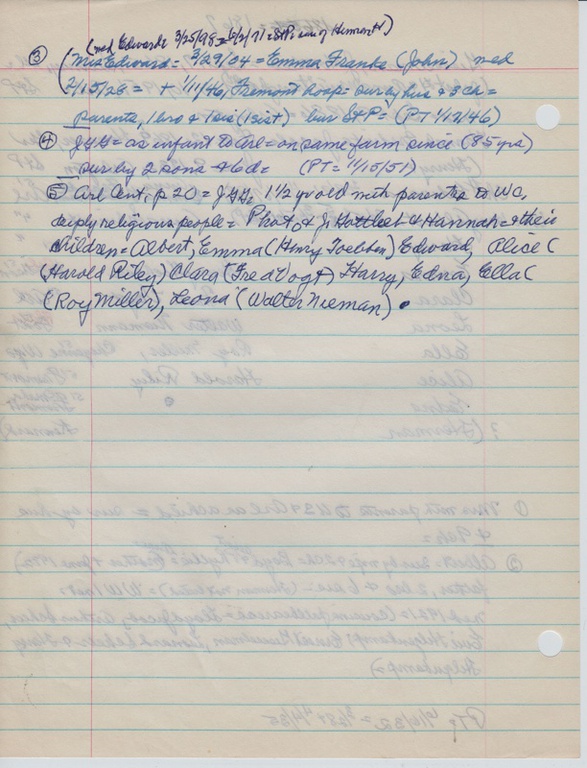 (med Edward= 3/25/98= 6/2/71= St P= cem of Hermont)
③ (Mrs Edward= 3/29/04 = Emma Franke (John) med
2/15/28 = + 1/11/46, Fremont hosp= sur by hus + 3 ch =
parents, 1 bro + 1 sis (1 sist) bur St P= (PT 1/12/46)
④ JGH= as infant to Arl= on same farm since (85 yrs)
sur by 2 sons + 6 d= (PT= 11/15/51)
⑤ Arl Cent, p 20 = JGH, 1 1/2 yr old with parents to WC,
deeply religious people= Phot of J. Gottlieb + Hannah= + their
children= Albert, Emma (Henry Toebben) Edward, Alice (
(Harold Riley) Clara (Fred Vogt) Harry, Edna, Ella (
(Roy Miller), Leona (Walter Nieman)